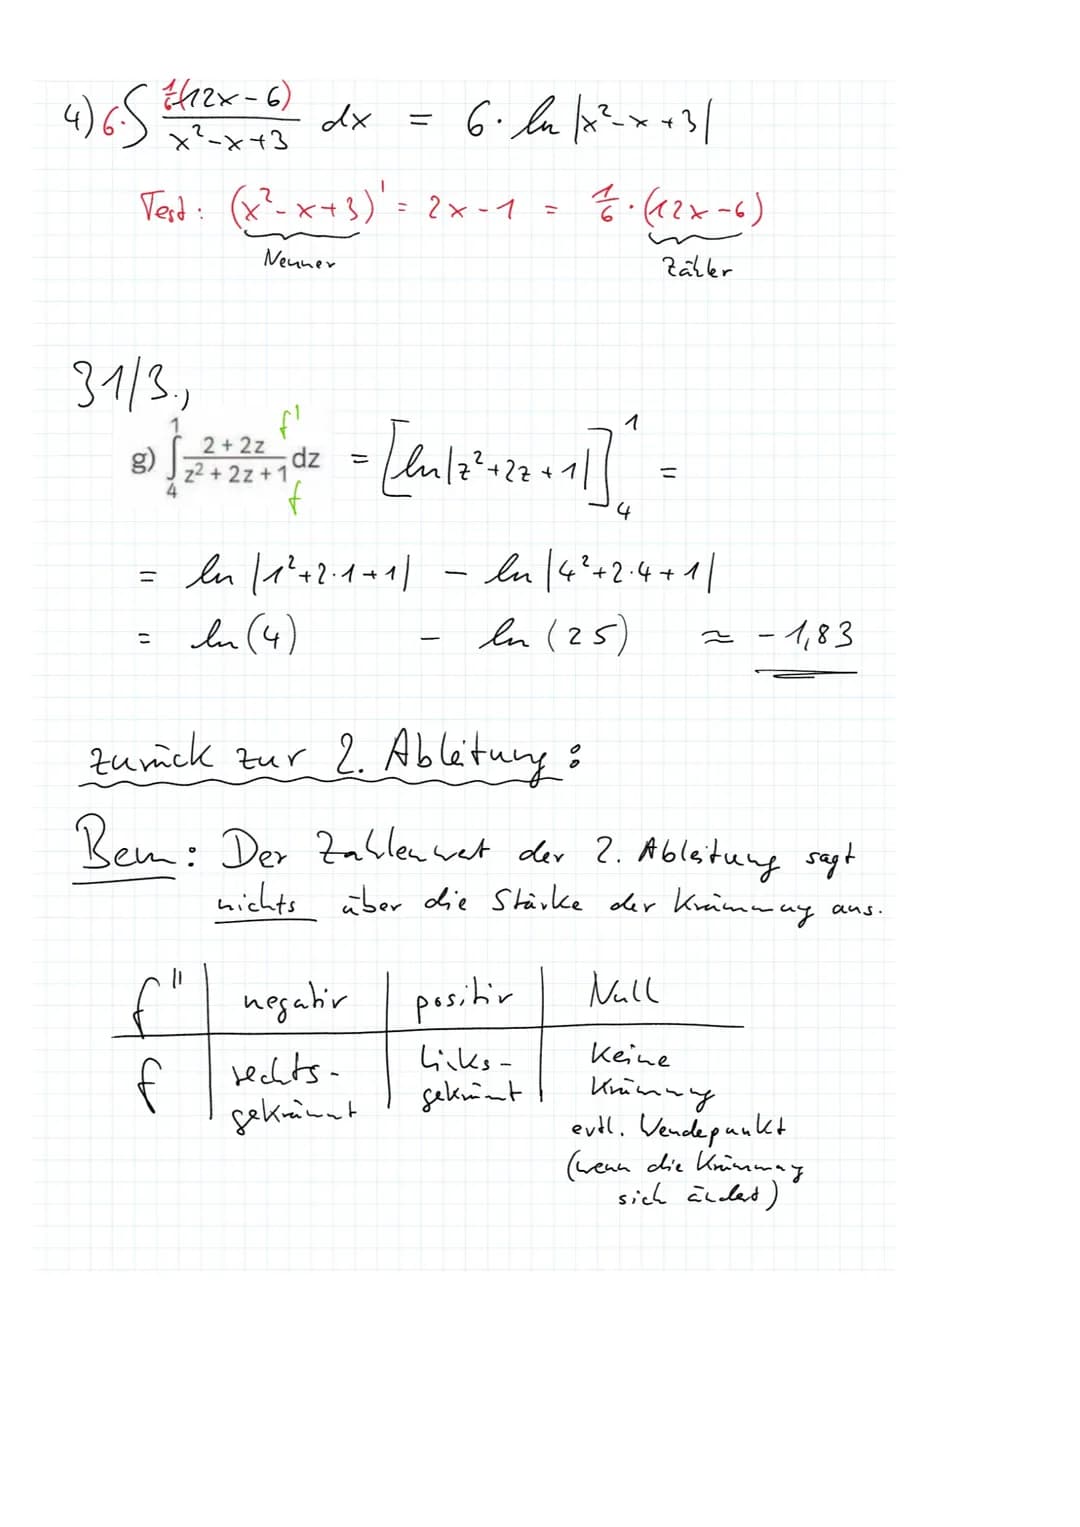 4) 6·∫ 1/6(12x-6)/(x²-x+3) dx = 6·ln|x²-x+3|
Test: (x²-x+3)' = 2x-1 = 1/6·(12x-6)
Nenner Zähler
31/3.,
g) ∫₄¹ (2+2z)/(z²+2z+1) dz f' f = [ln|z²+2z+1|]₄¹ =
= ln|1²+2·1+1| - ln|4²+2·4+1|
= ln(4) - ln(25) ≈ -1,83
zurück zur 2. Ableitung:
Bem: Der Zahlenwert der 2. Ableitung sagt
nichts über die Stärke der Krümmung aus.
f'' negativ positiv Null
f rechts- links- Keine
gekrümmt gekrümmt Krümmung
evtl. Wendepunkt
(wenn die Krümmung
sich ändert)